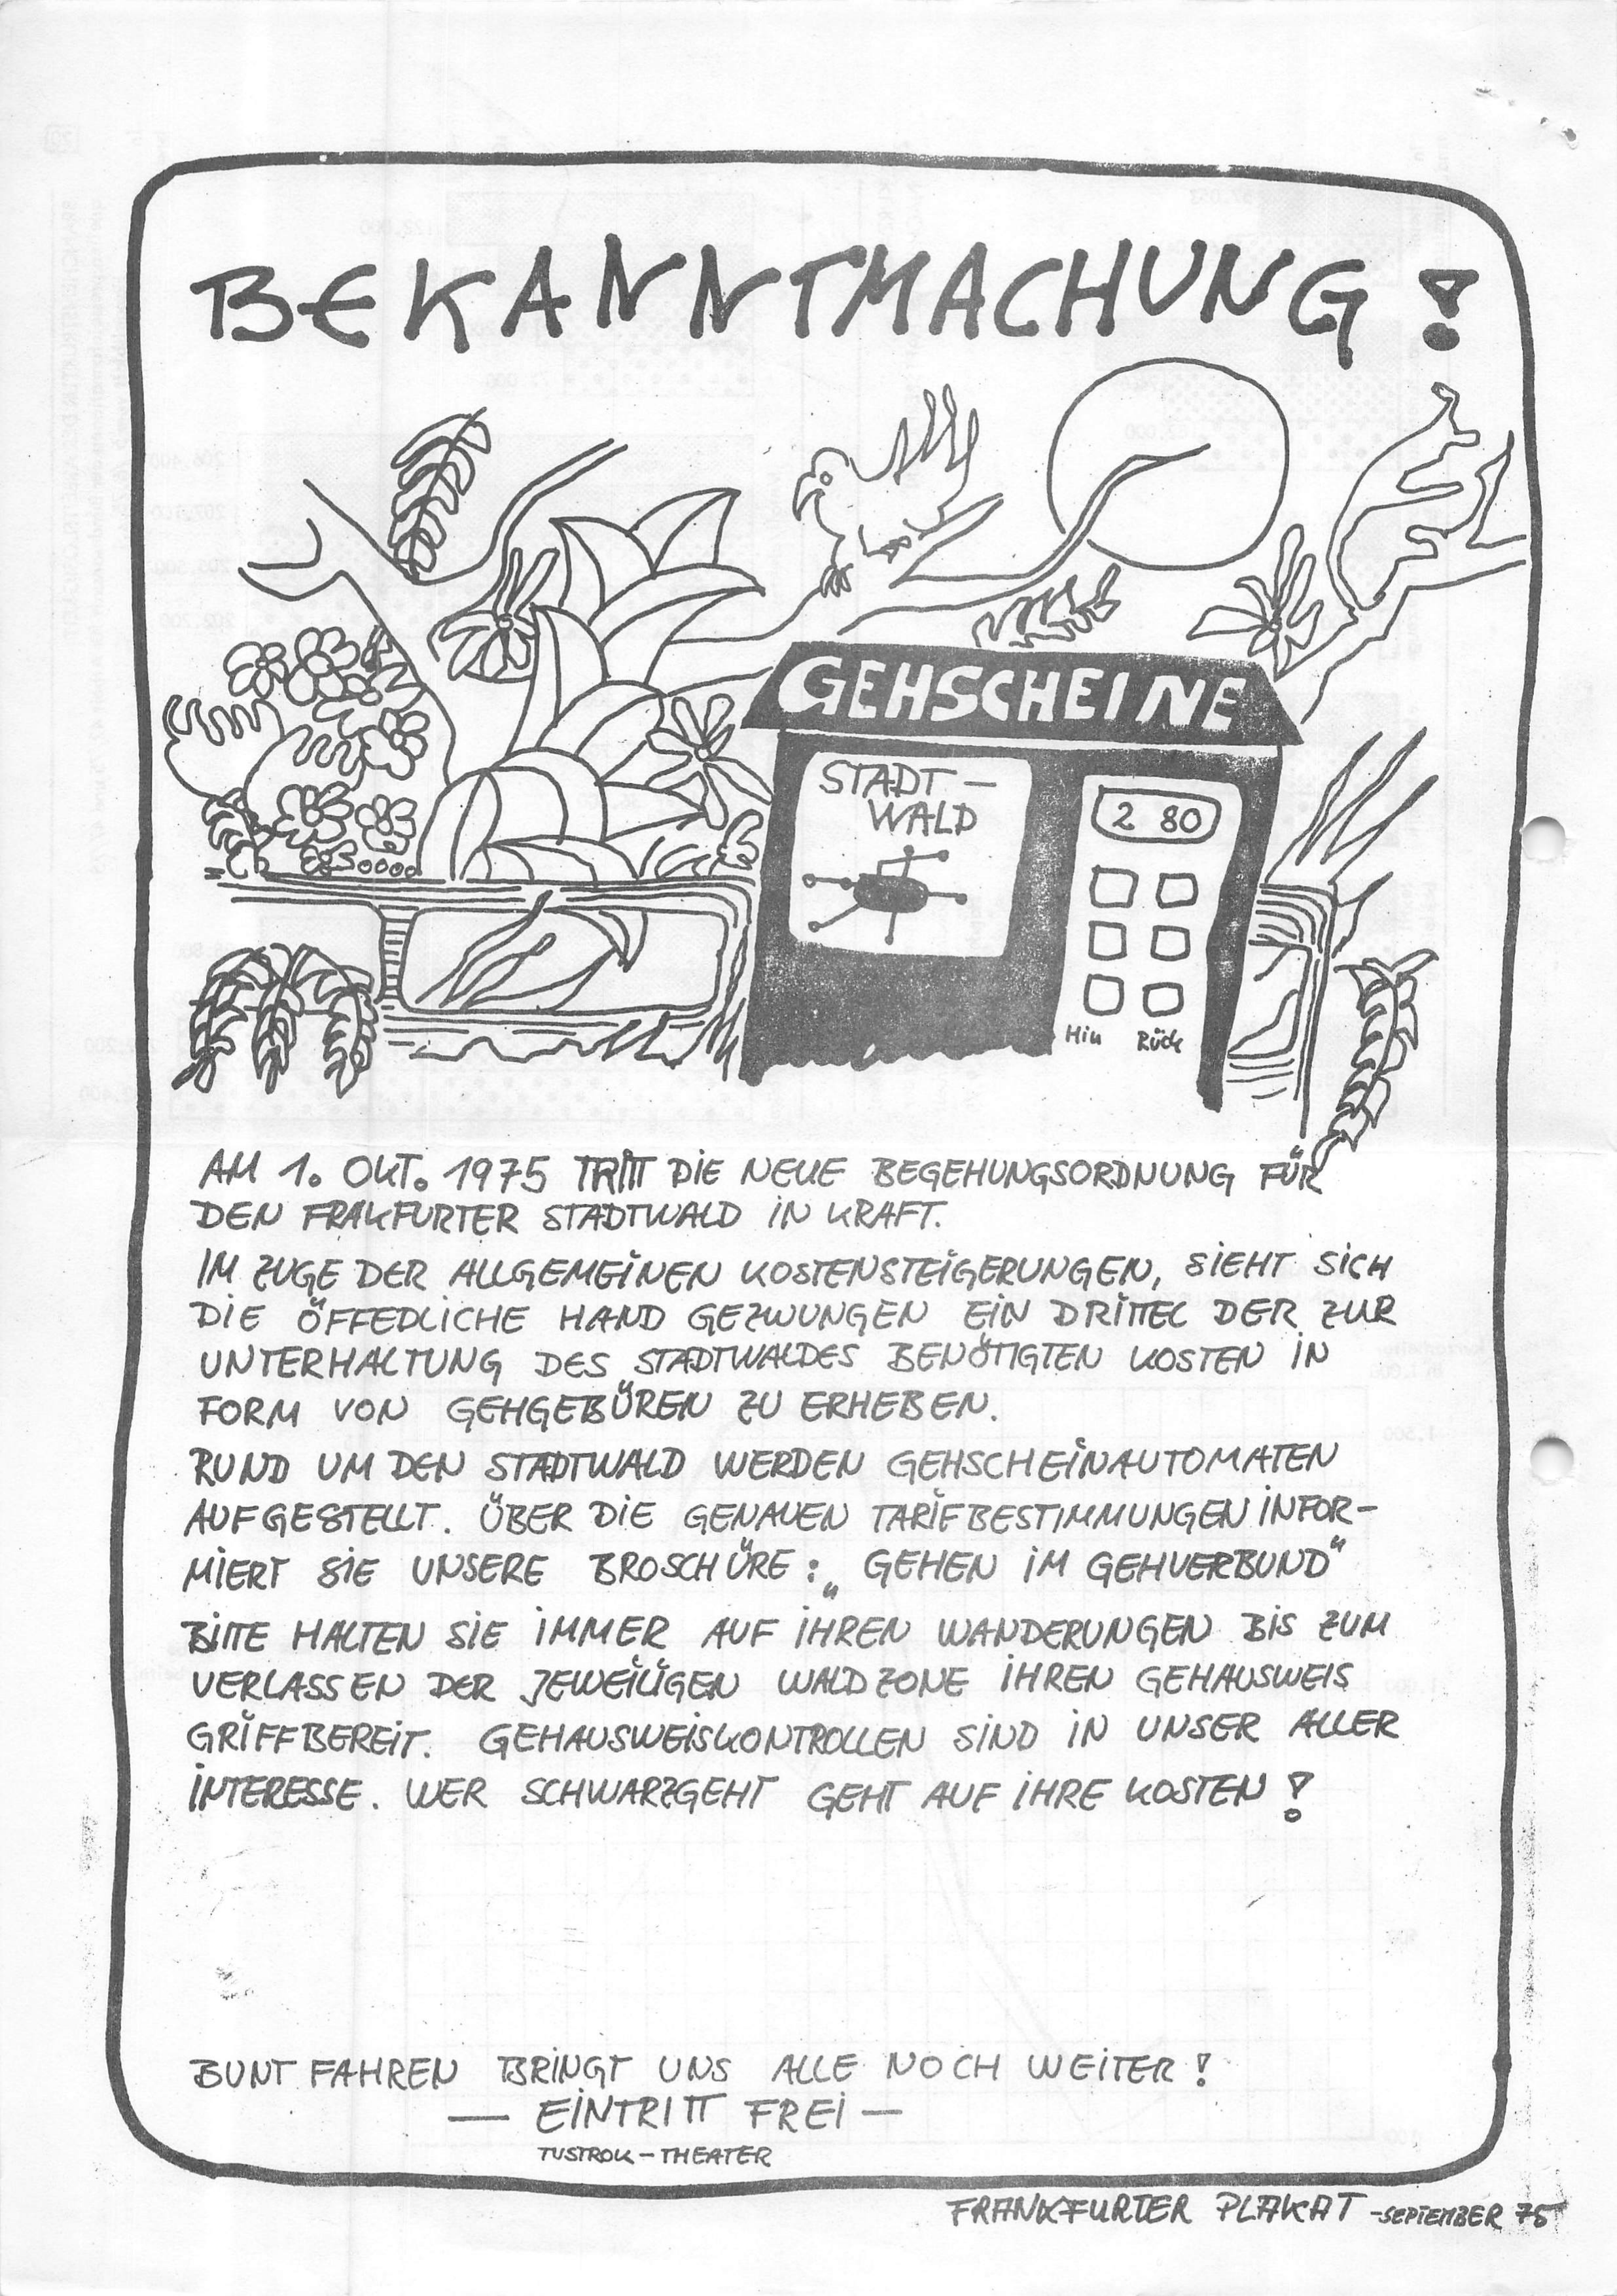 BEKANNTMACHUNG!
GEHSCHEINE
STADT-
WALD
2 80
Hin Rück
AM 1. OKT. 1975 TRITT DIE NEUE BEGEHUNGSORDNUNG FÜR
DEN FRAKFURTER STADTWALD IN KRAFT.
IM ZUGE DER ALLGEMEINEN KOSTENSTEIGERUNGEN, SIEHT SICH
DIE ÖFFEDLICHE HAND GEZWUNGEN EIN DRITTEL DER ZUR
UNTERHALTUNG DES STADTWALDES BENÖTIGTEN KOSTEN IN
FORM VON GEHGEBÜREN ZU ERHEBEN.
RUND UM DEN STADTWALD WERDEN GEHSCHEINAUTOMATEN
AUFGESTELLT. ÜBER DIE GENAUEN TARIFBESTIMMUNGEN INFOR-
MIERT SIE UNSERE BROSCHÜRE: „GEHEN IM GEHVERBUND“
BITTE HALTEN SIE IMMER AUF IHREN WANDERUNGEN BIS ZUM
VERLASSEN DER JEWEILIGEN WALDZONE IHREN GEHAUSWEIS
GRIFFBEREIT. GEHAUSWEISKONTROLLEN SIND IN UNSER ALLER
INTERESSE. WER SCHWARZGEHT GEHT AUF IHRE KOSTEN!
BUNT FAHREN BRINGT UNS ALLE NOCH WEITER!
— EINTRITT FREI —
TUSTROK-THEATER
FRANKFURTER PLAKAT -SEPTEMBER 75